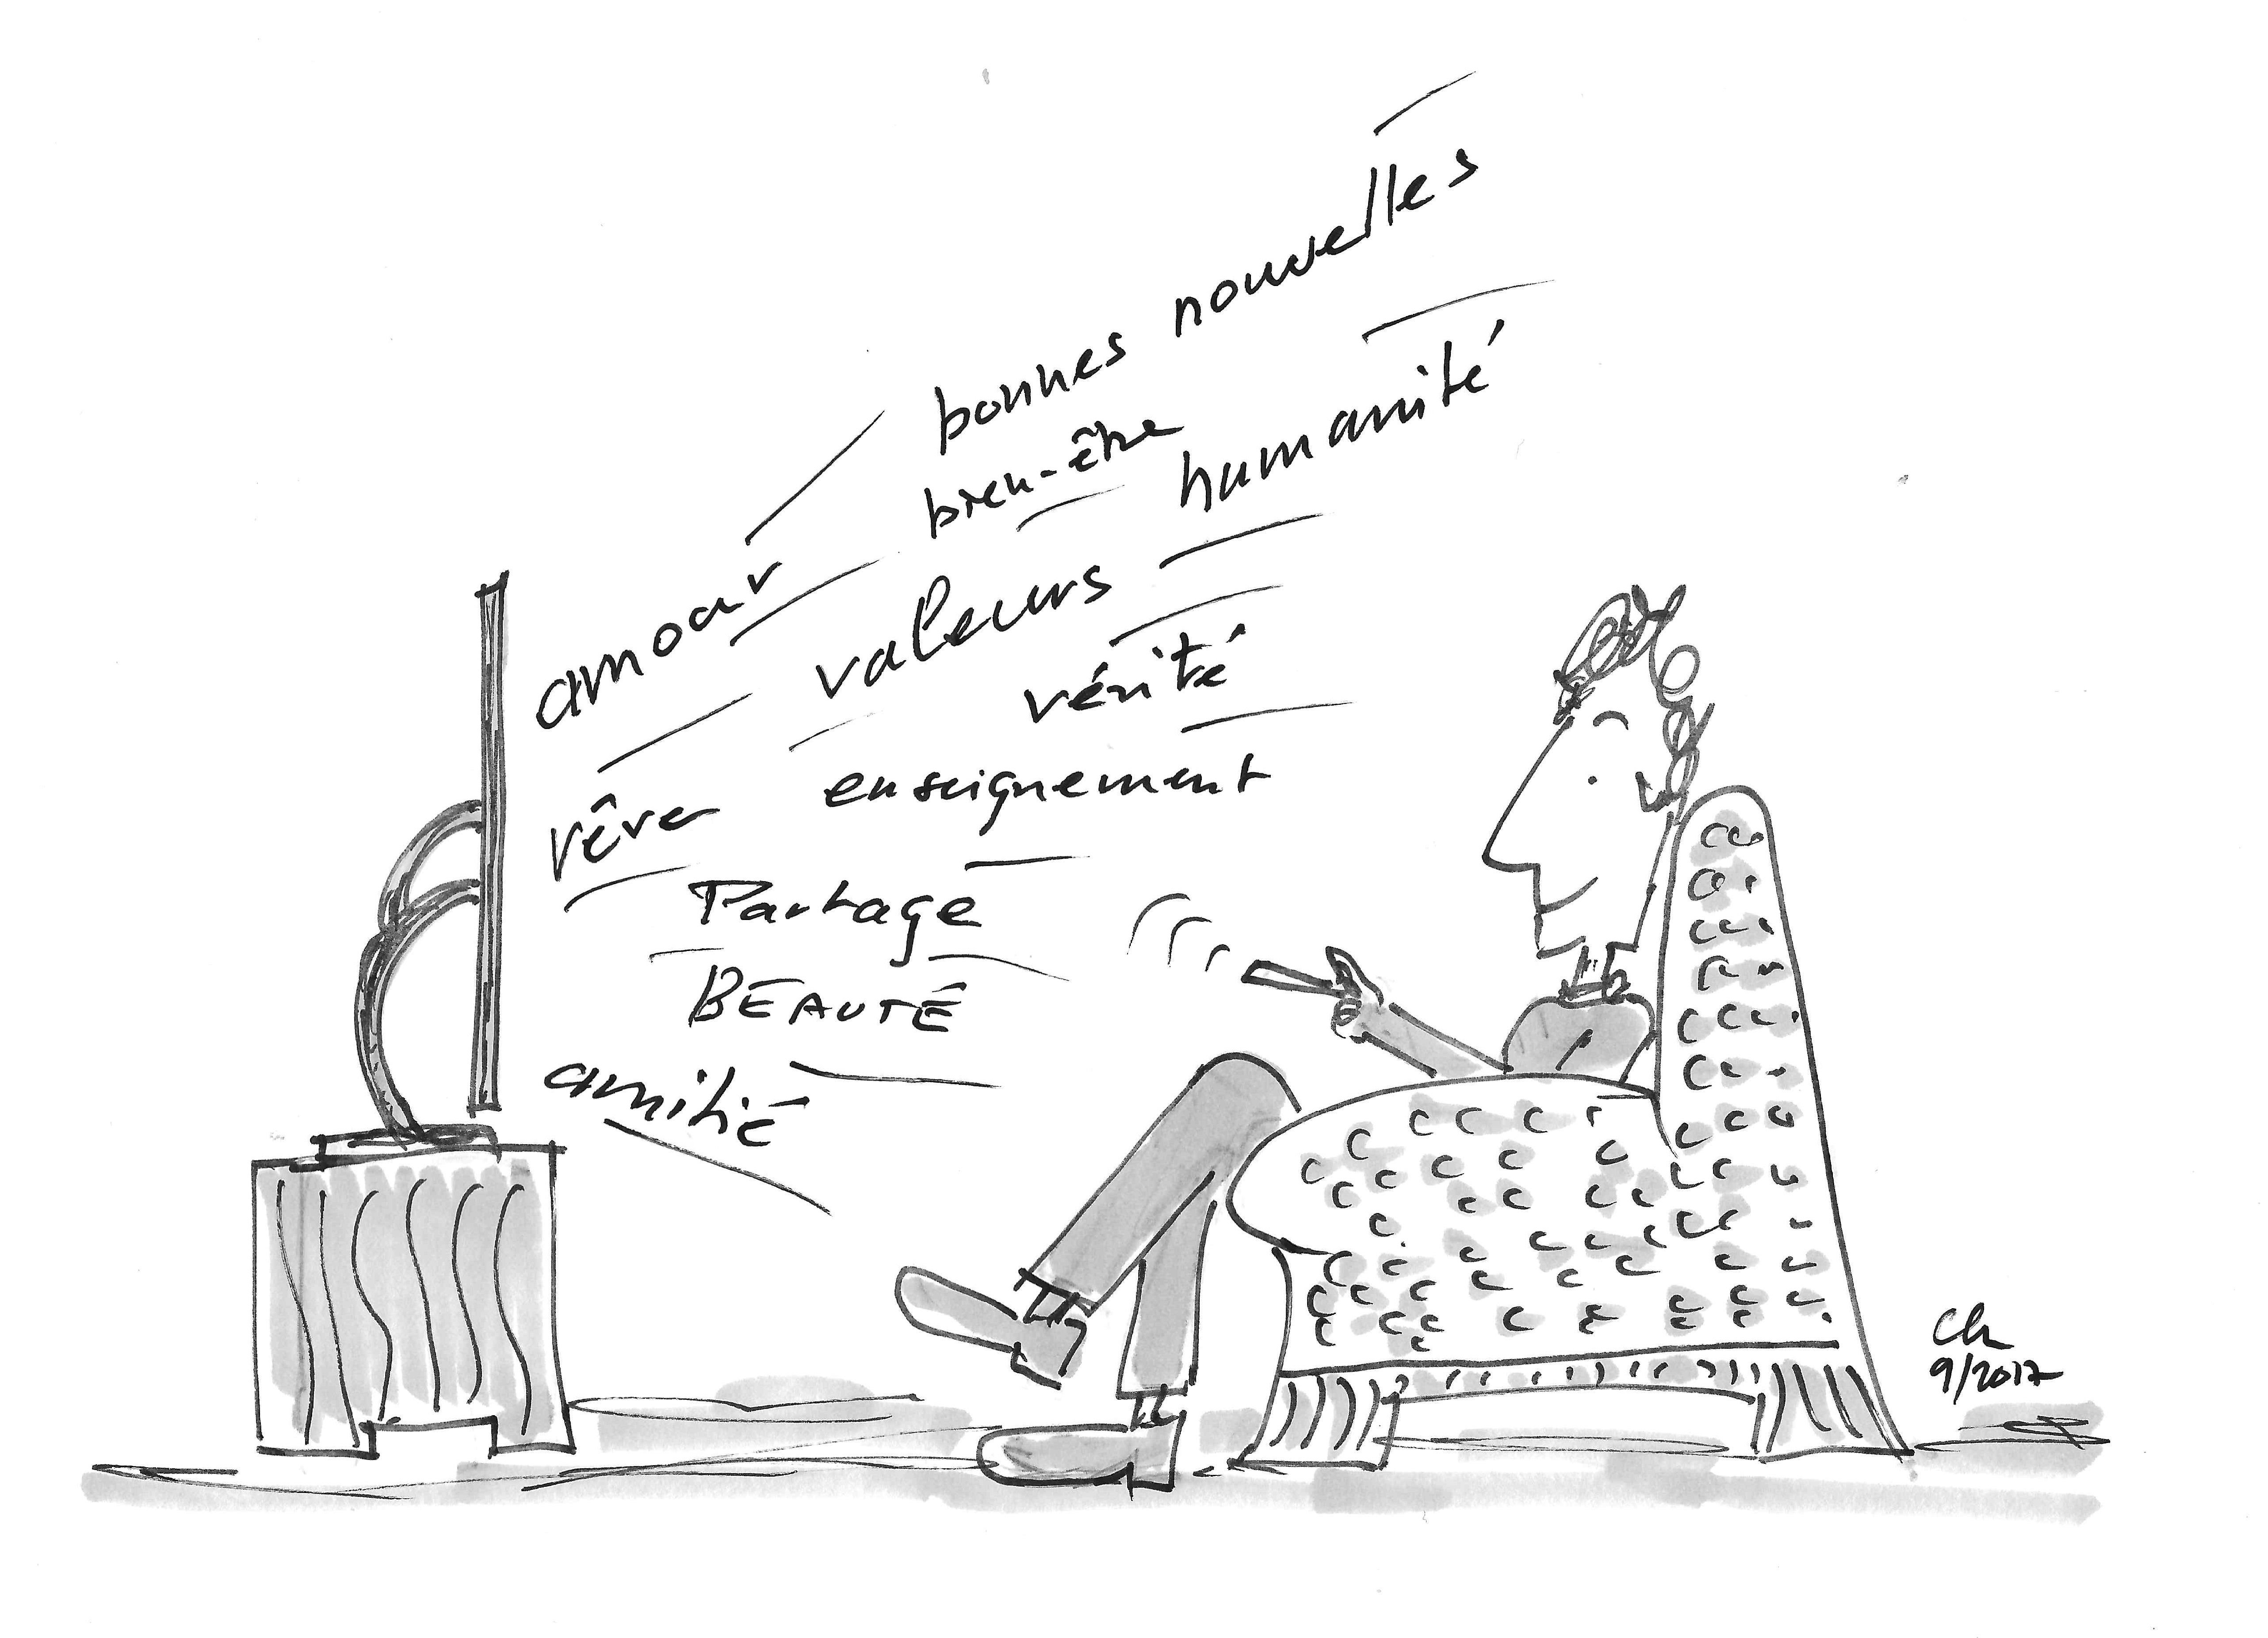 bonnes nouvelles
bien-être
humanité
amour
valeurs
vérité
rêve
enseignement
Partage
BEAUTÉ
amitié
Ch
9/2017